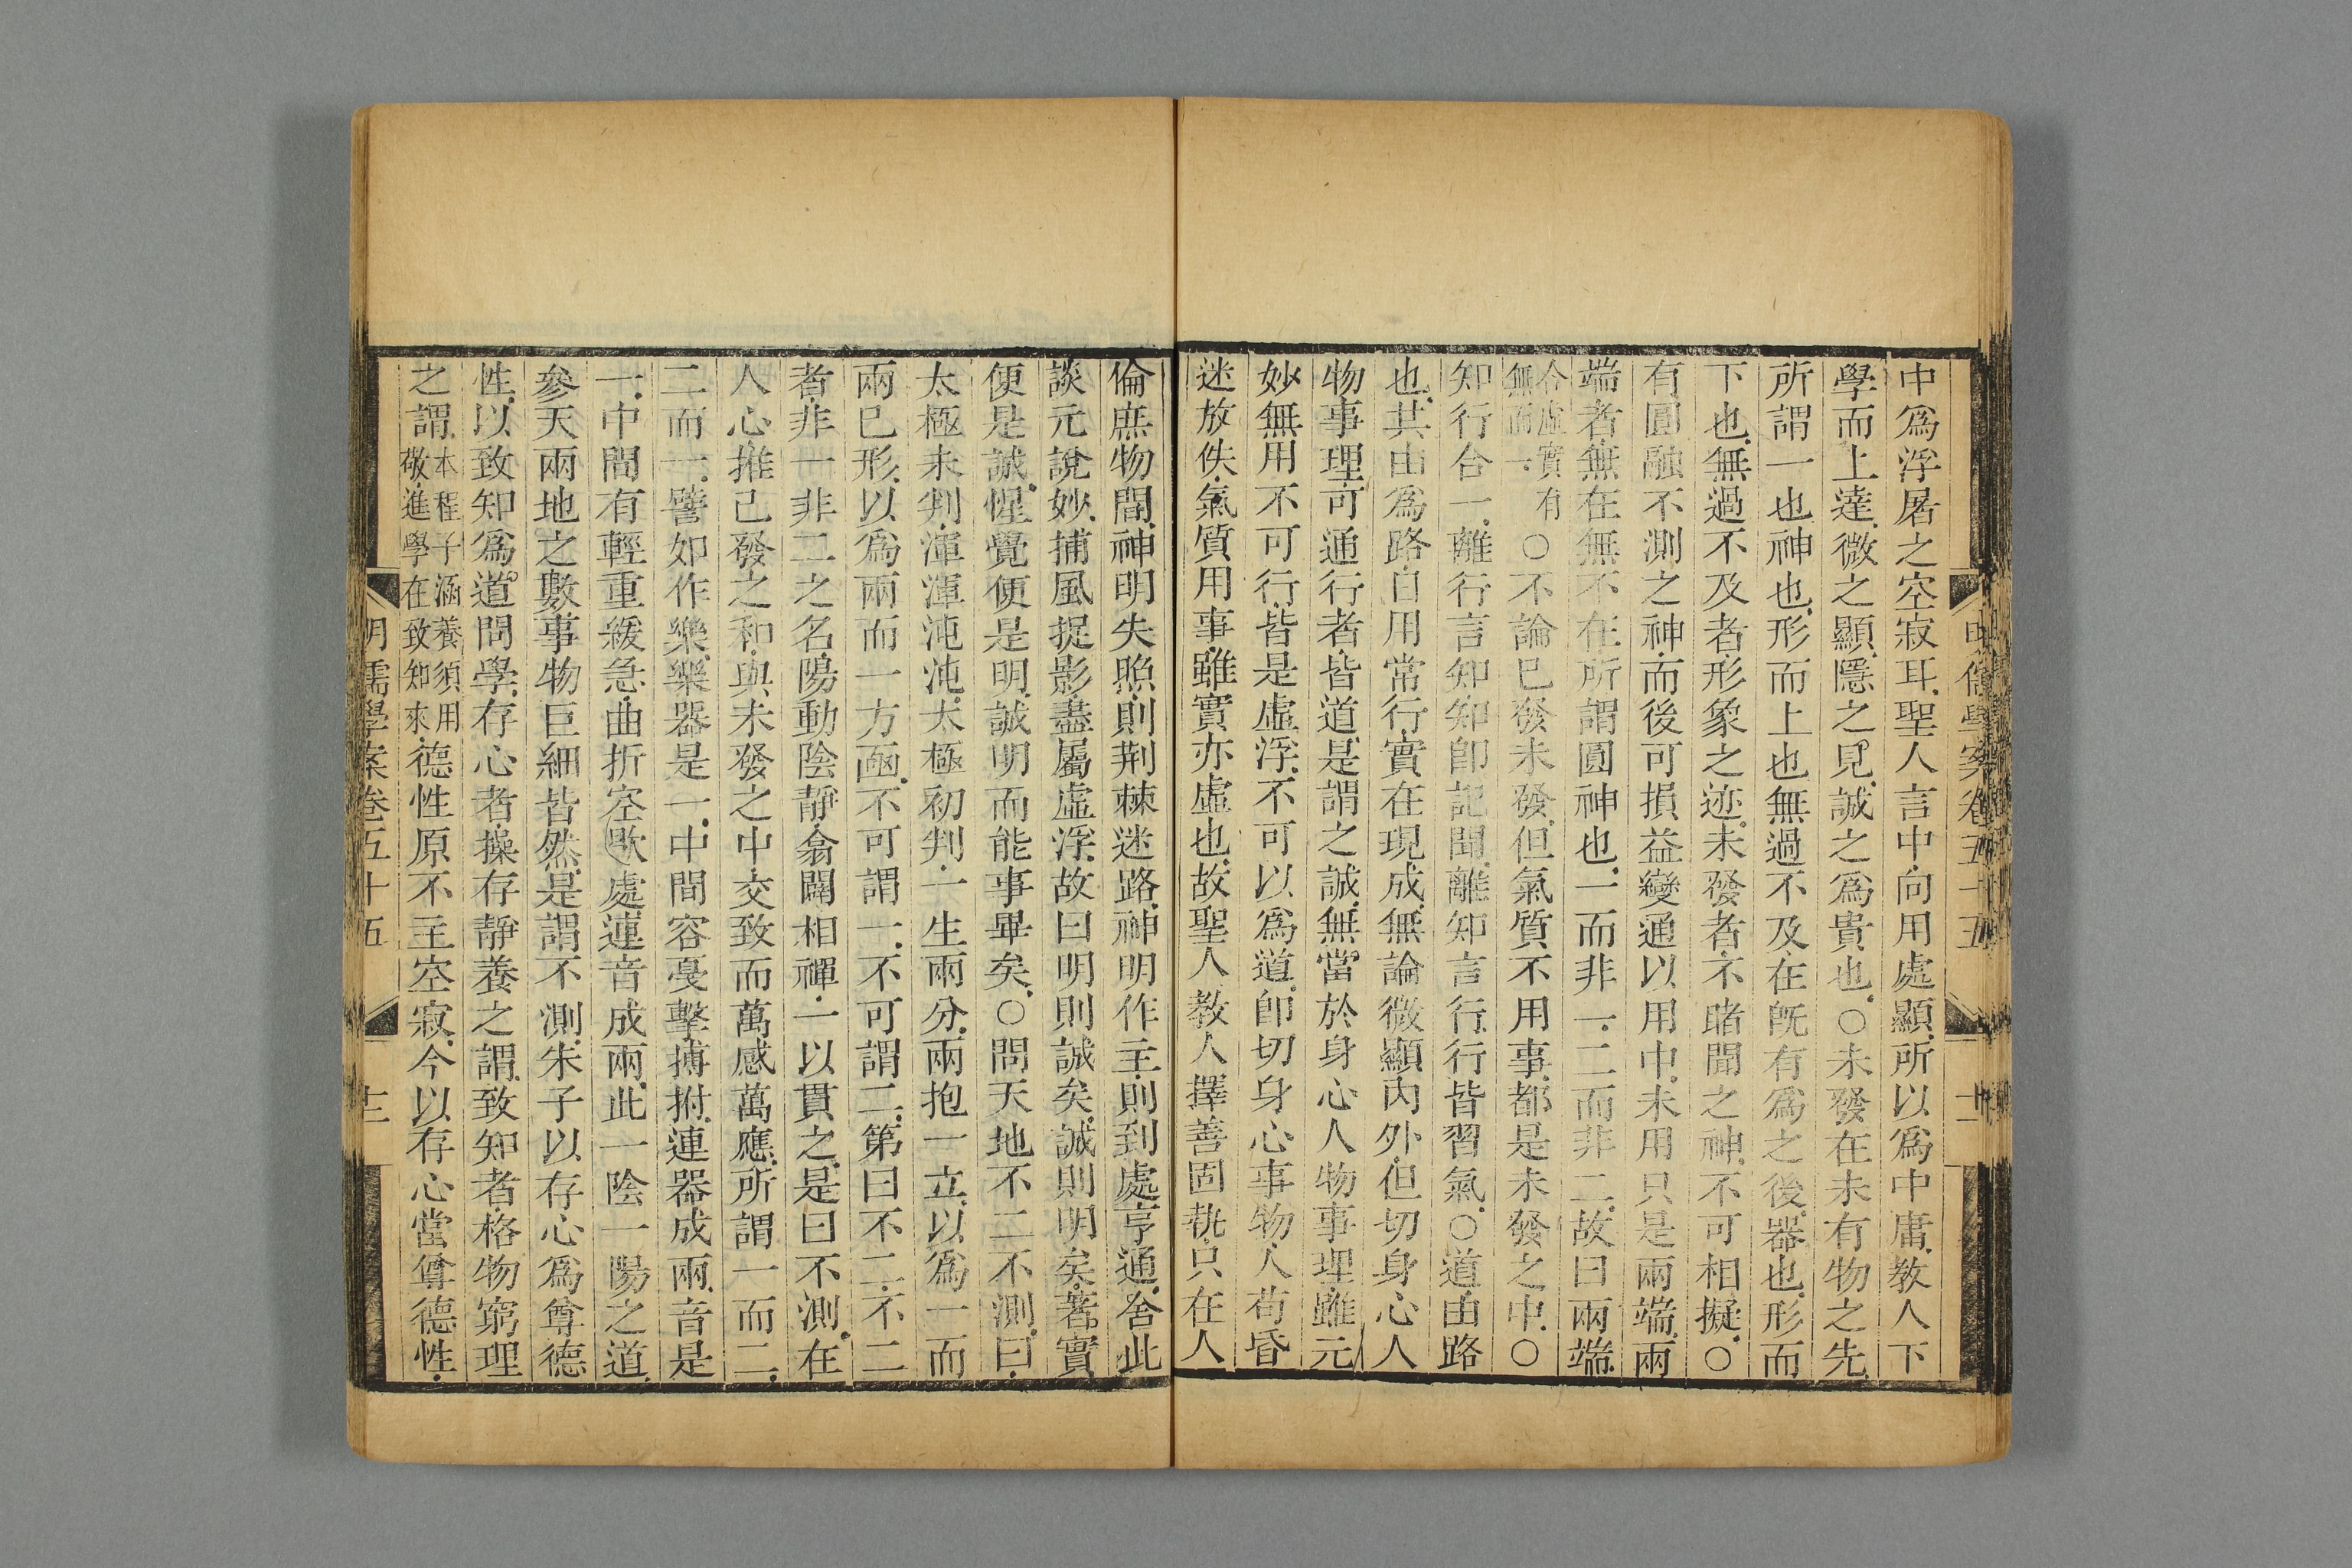 中爲浮屠之空寂耳聖人言中向用處顯所以爲中庸教人下
學而上達微之顯隱之見誠之爲貴也○未發在未有物之先
所謂一也神也形而上也無過不及在旣有爲之後器也形而
下也無過不及者形象之迹未發者不睹聞之神不可相擬○
有圓融不測之神而後可損益變通以用中未用只是兩端兩
端者無在無不在所謂圓神也一而非一二而非二故曰兩端
合虛實有
無而一
○不論已發未發但氣質不用事都是未發之中○
知行合一離行言知知卽記聞離知言行行皆習氣○道由路
也其由爲路自用常行實在現成無論微顯內外但切身心人
物事理可通行者皆道是謂之誠無當於身心人物事理雖元
妙無用不可行皆是虛浮不可以爲道卽切身心事物人苟昏
迷放佚氣質用事雖實亦虛也故聖人教人擇善固執只在人
倫庶物間神明失照則荆棘迷路神明作主則到處亨通舍此
談元說妙捕風捉影盡屬虛浮故曰明則誠矣誠則明矣著實
便是誠惺覺便是明誠明而能事畢矣○問天地不二不測曰
太極未判渾渾沌沌太極初判一生兩分兩抱一立以爲一而
兩已形以爲兩而一方函不可謂一不可謂二第曰不二不二
者非一非二之名陽動陰靜翕闢相禪一以貫之是曰不測在
人心推己發之和與未發之中交致而萬感萬應所謂一而二
二而一譬如作樂樂器是一中間容戞擊搏拊連器成兩音是
一中間有輕重緩急曲折空歇處連音成兩此一陰一陽之道
參天兩地之數事物巨細皆然是謂不測朱子以存心爲尊德
性以致知爲道問學存心者操存靜養之謂致知者格物窮理
之謂
本程子涵養須用
敬進學在致知來
德性原不主空寂今以存心當尊德性
明儒學案卷五十五
十二